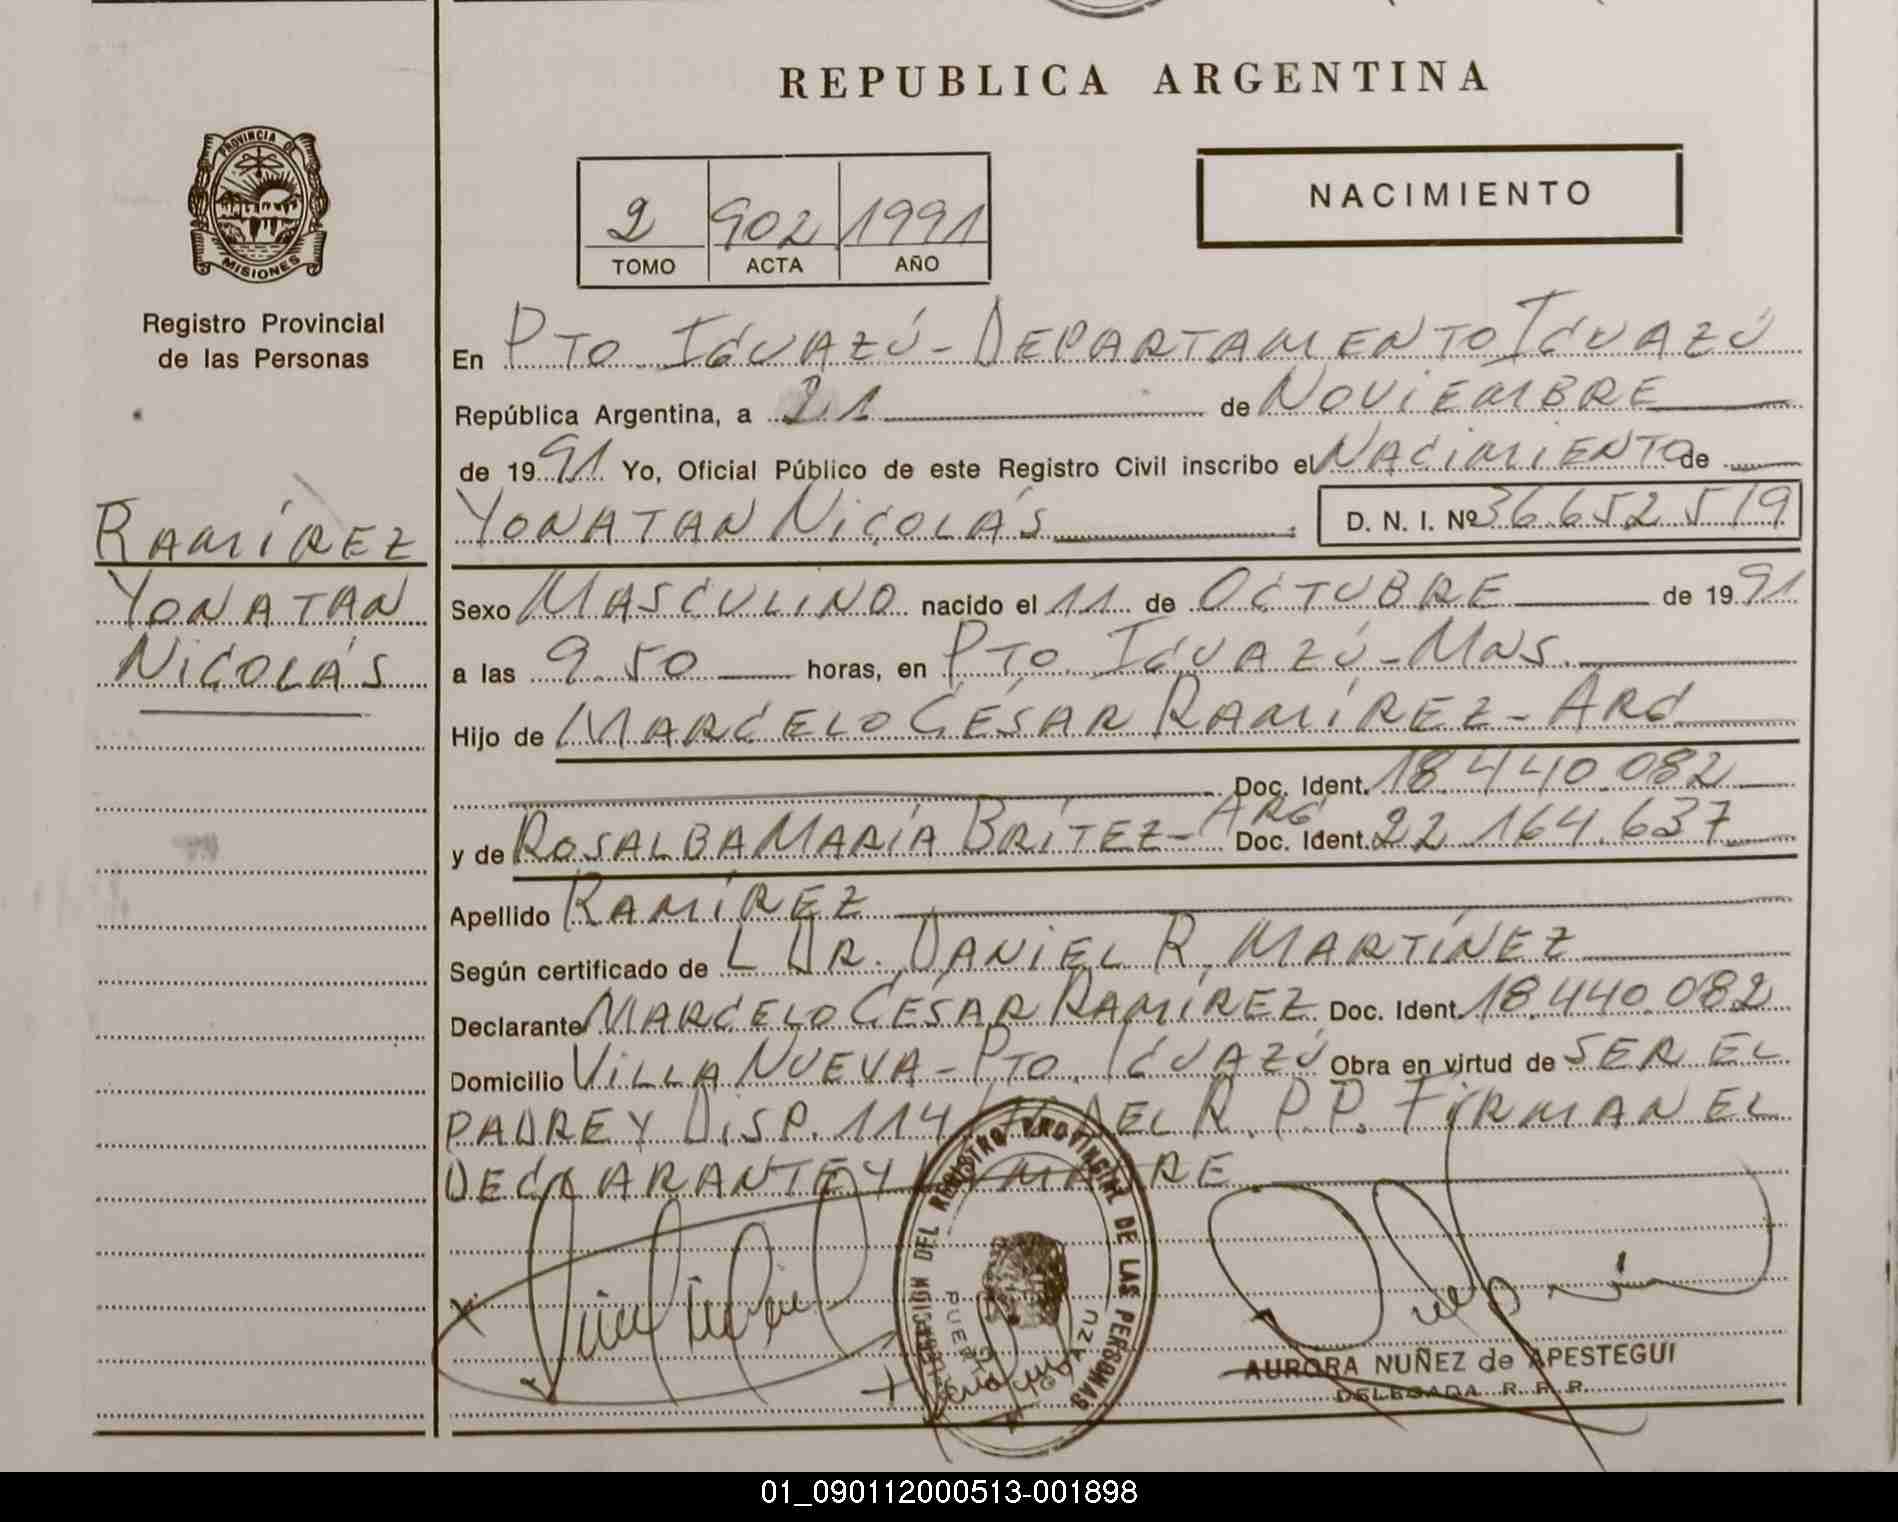 REPUBLICA ARGENTINA
PROVINCIA DE
MISIONES
Registro Provincial
de las Personas
NACIMIENTO
2 902 1991
TOMO ACTA AÑO
En PTO IGUAZÚ - DEPARTAMENTO IGUAZÚ
República Argentina, a 21 de NOVIEMBRE
de 1991 Yo, Oficial Público de este Registro Civil inscribo el NACIMIENTO de
YONATAN NICOLÁS D. N. I. Nº 36.652.519
RAMÍREZ
YONATAN
NICOLÁS
Sexo MASCULINO nacido el 11 de OCTUBRE de 1991
a las 9.50 horas, en PTO. IGUAZÚ - MNS.
Hijo de MARCELO CÉSAR RAMÍREZ - ARG
Doc. Ident. 18.440.082
y de ROSALBA MARÍA BRÍTEZ - ARG Doc. Ident. 22.164.637
Apellido RAMÍREZ
Según certificado de L DR. DANIEL R. MARTÍNEZ
Declarante MARCELO CÉSAR RAMÍREZ Doc. Ident. 18.440.082
Domicilio VILLA NUEVA - PTO. IGUAZÚ Obra en virtud de SER EL
PADRE Y DISP. 114 DEL R.P.P. FIRMAN EL
DECLARANTE Y LA MADRE
DEL REGISTRO PROVINCIAL DE LAS PERSONAS
PUERTO IGUAZU
AURORA NUÑEZ de APESTEGUI
DELEGADA R. P. P.
01_090112000513-001898